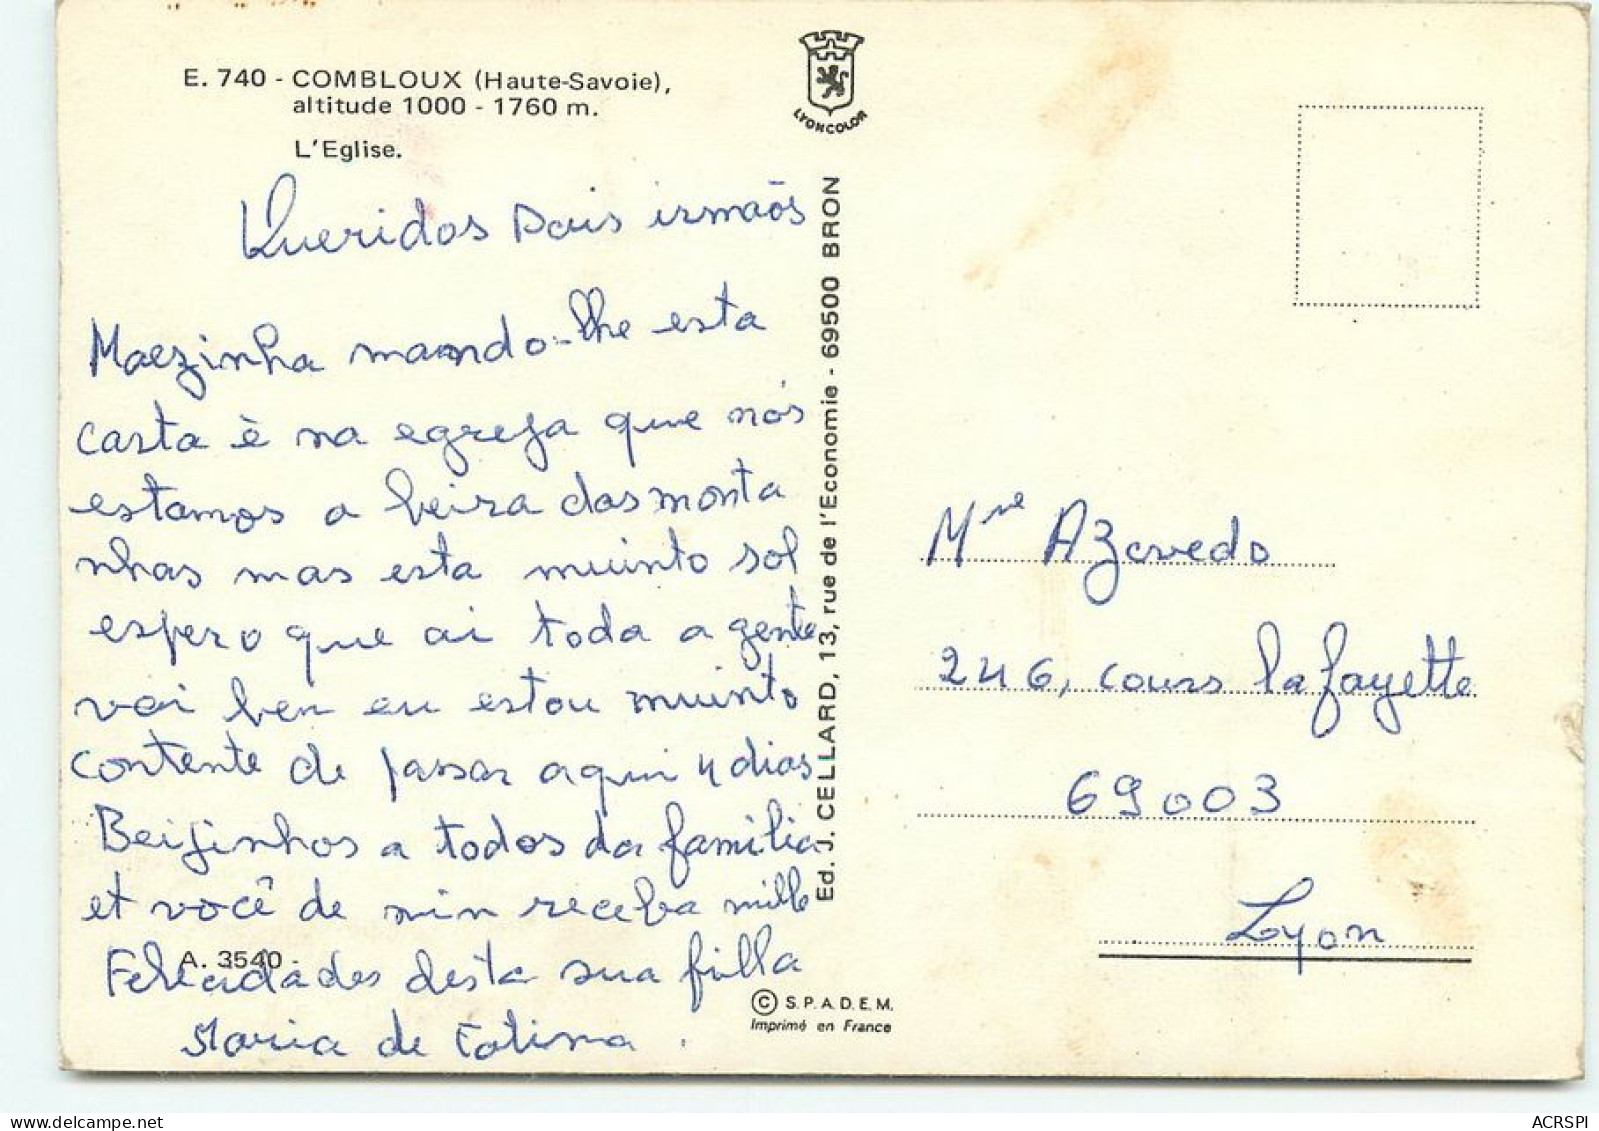 E. 740 - COMBLOUX (Haute-Savoie),
altitude 1000 - 1760 m.
L'Eglise.
LYONCOLOR
Queridos Pais irmaõs
Maezinha mando-lhe esta
carta è na egreja que nós
estamos a beira das monta
nhas mas esta muinto sol
espero que ai toda a gente
vai ben eu estou muinto
contente de passar aqui 4 dias
Beijinhos a todos da familia
et você de min receba mille
Felicidades desta sua filla
Maria de Fatima .
A. 3540 -
Ed. J. CELLARD, 13, rue de l'Economie - 69500 BRON
© S.P.A.D.E.M.
Imprimé en France
Mme Azevedo
246, cours lafayette
69003
Lyon
ACRSPI